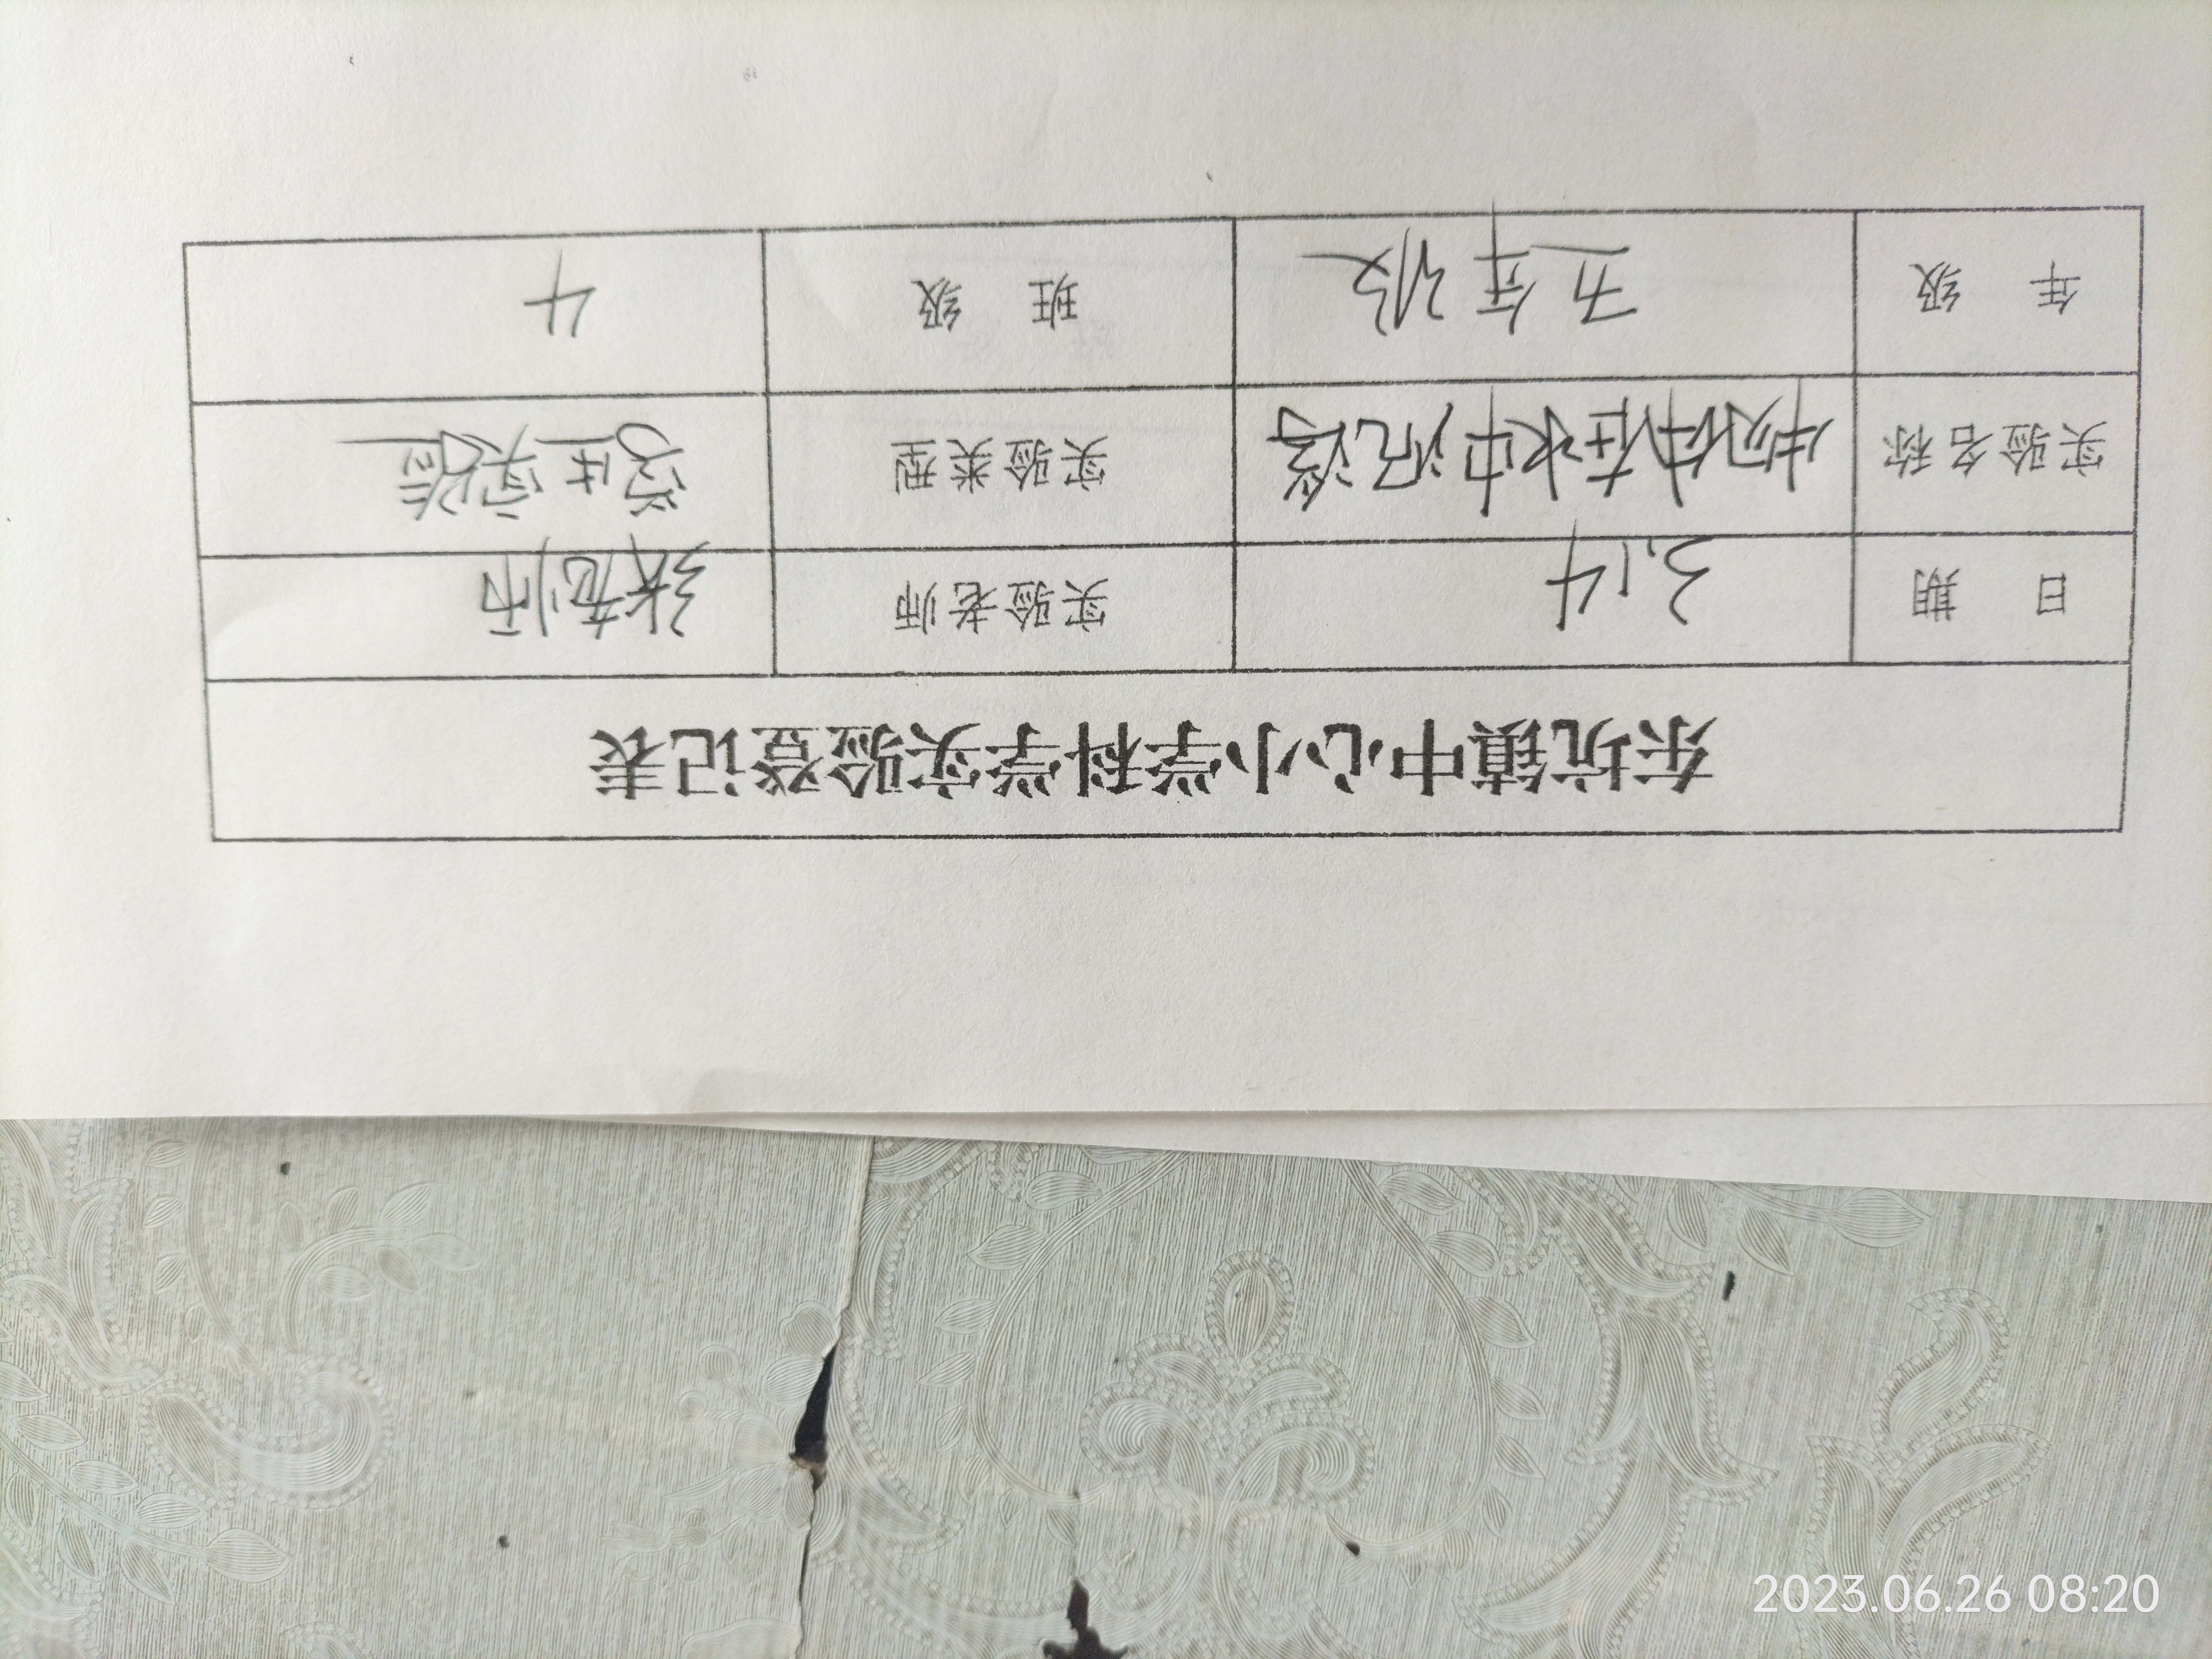 东坑镇中心小学科学实验登记表
日 期 3.14 实验老师 张老师
实验名称 物体在水中沉浮 实验类型 学生实验
年 级 五年级 班 级 4
2023.06.26 08:20